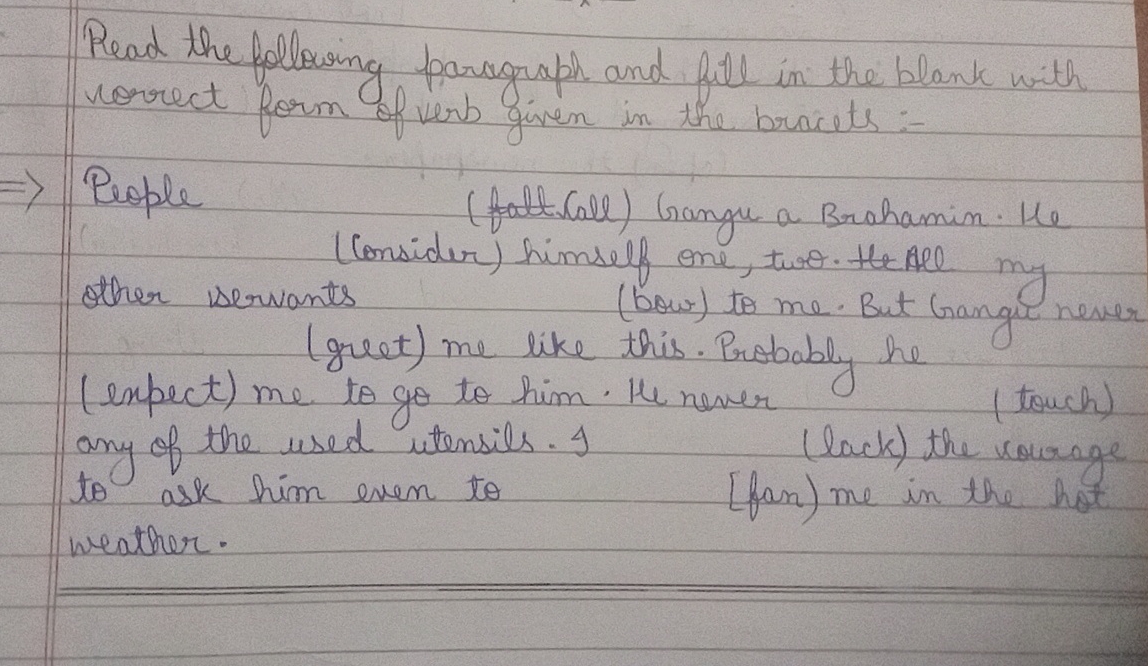 Read the following paragraph and fill in the blank with
correct form of verb given in the bracets :-
=> People (Call) Gangu a Brahamin. He
(Consider) himself one, two. All my
other servants (bow) to me. But Gangu never
(greet) me like this. Probably he
(expect) me to go to him. He never (touch)
any of the used utensils. I (lack) the courage
to ask him even to (fan) me in the hot
weather.